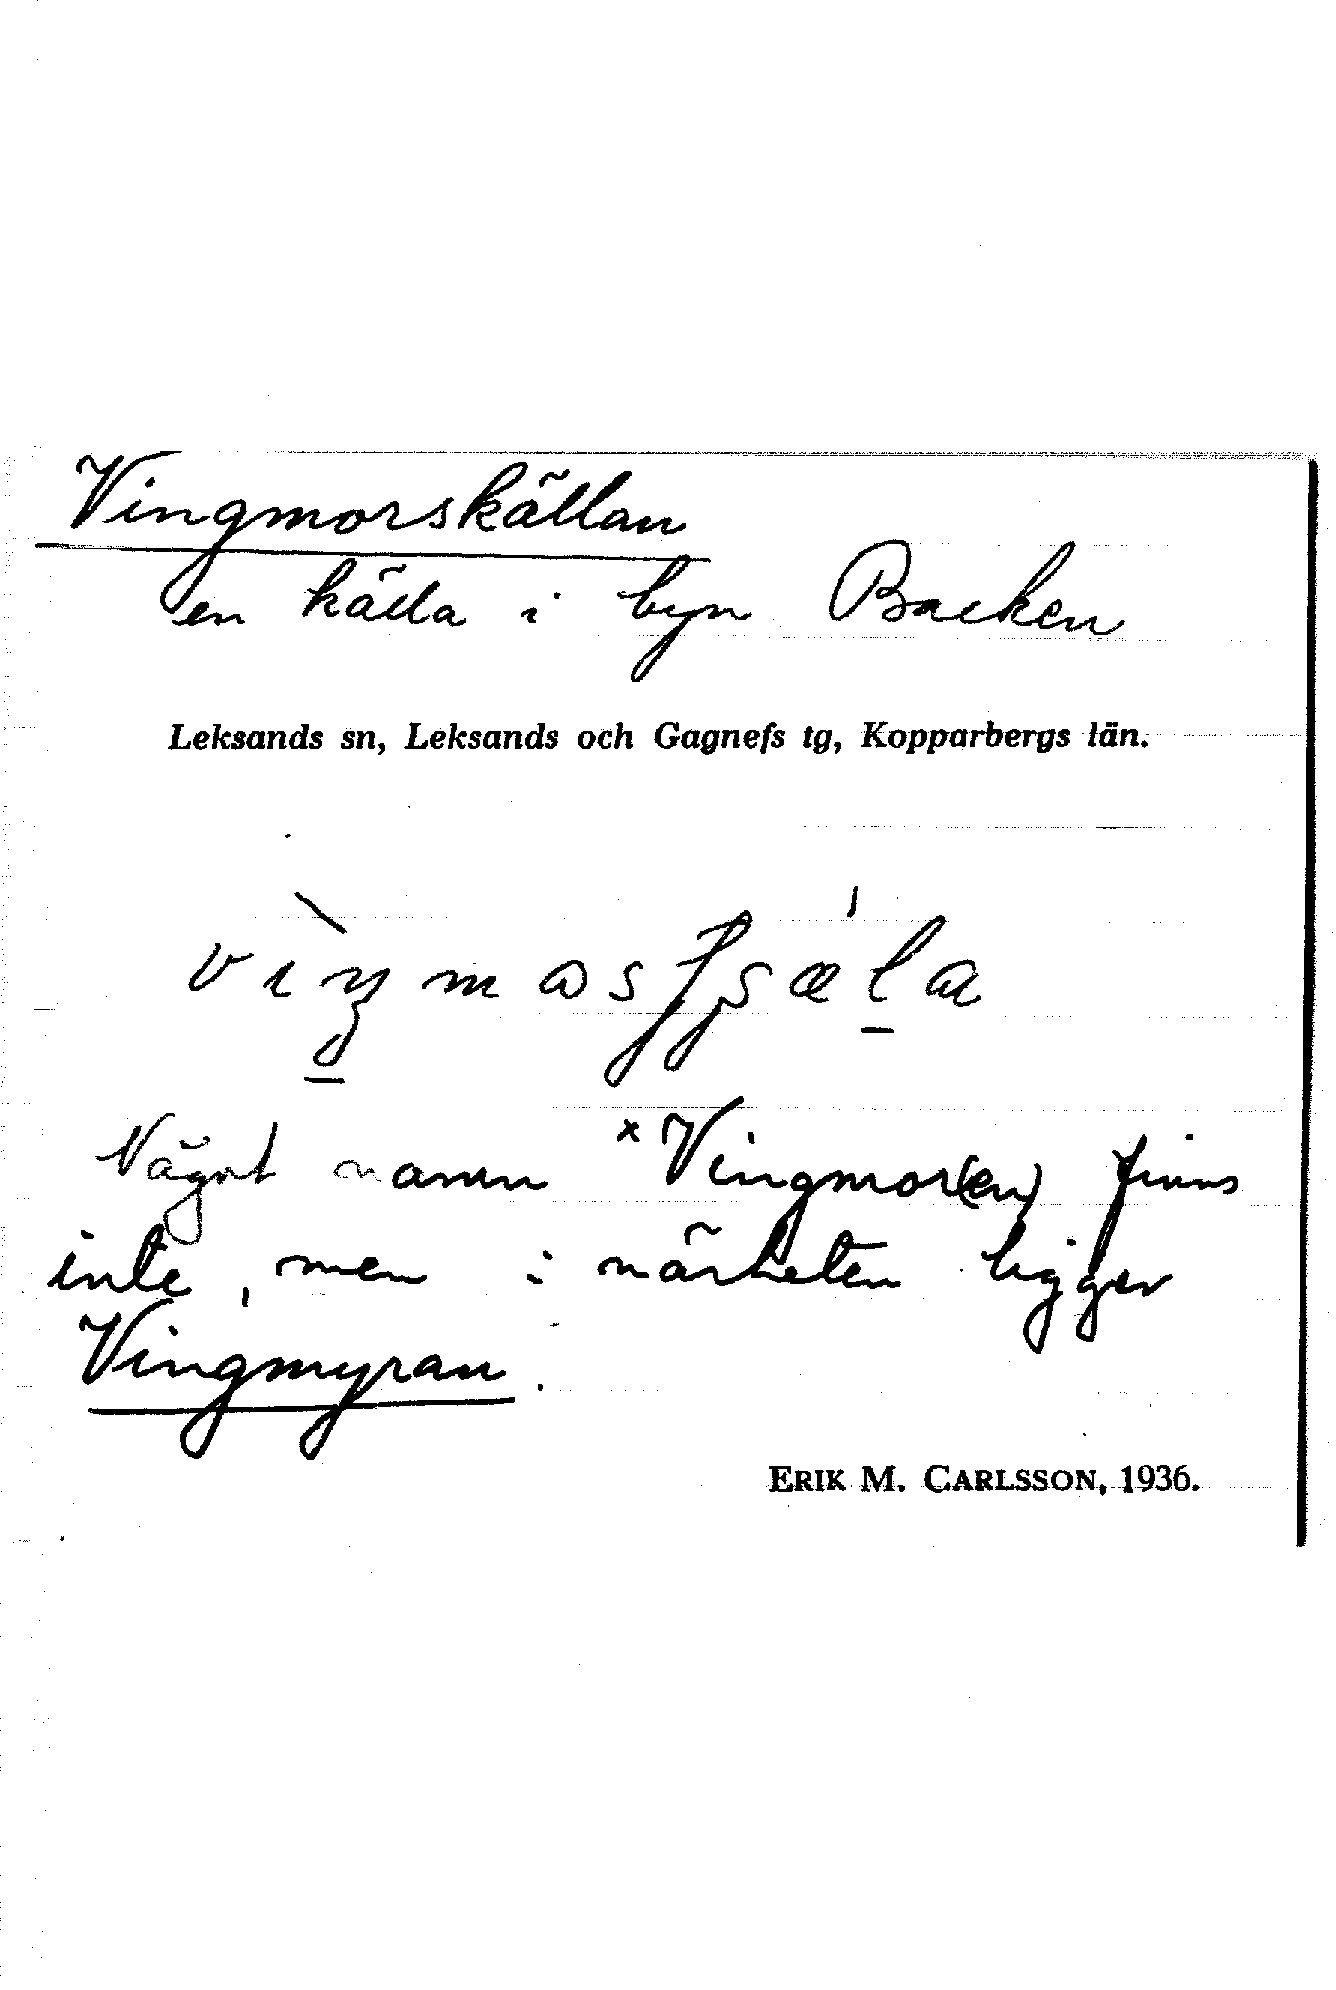 Vingmorskällan
en källa i byn Backen
Leksands sn, Leksands och Gagnefs tg, Kopparbergs län.
Något namn *Vingmor(en) finns
inte, men i närheten ligger
Vingmyran.
ERIK M. CARLSSON, 1936.